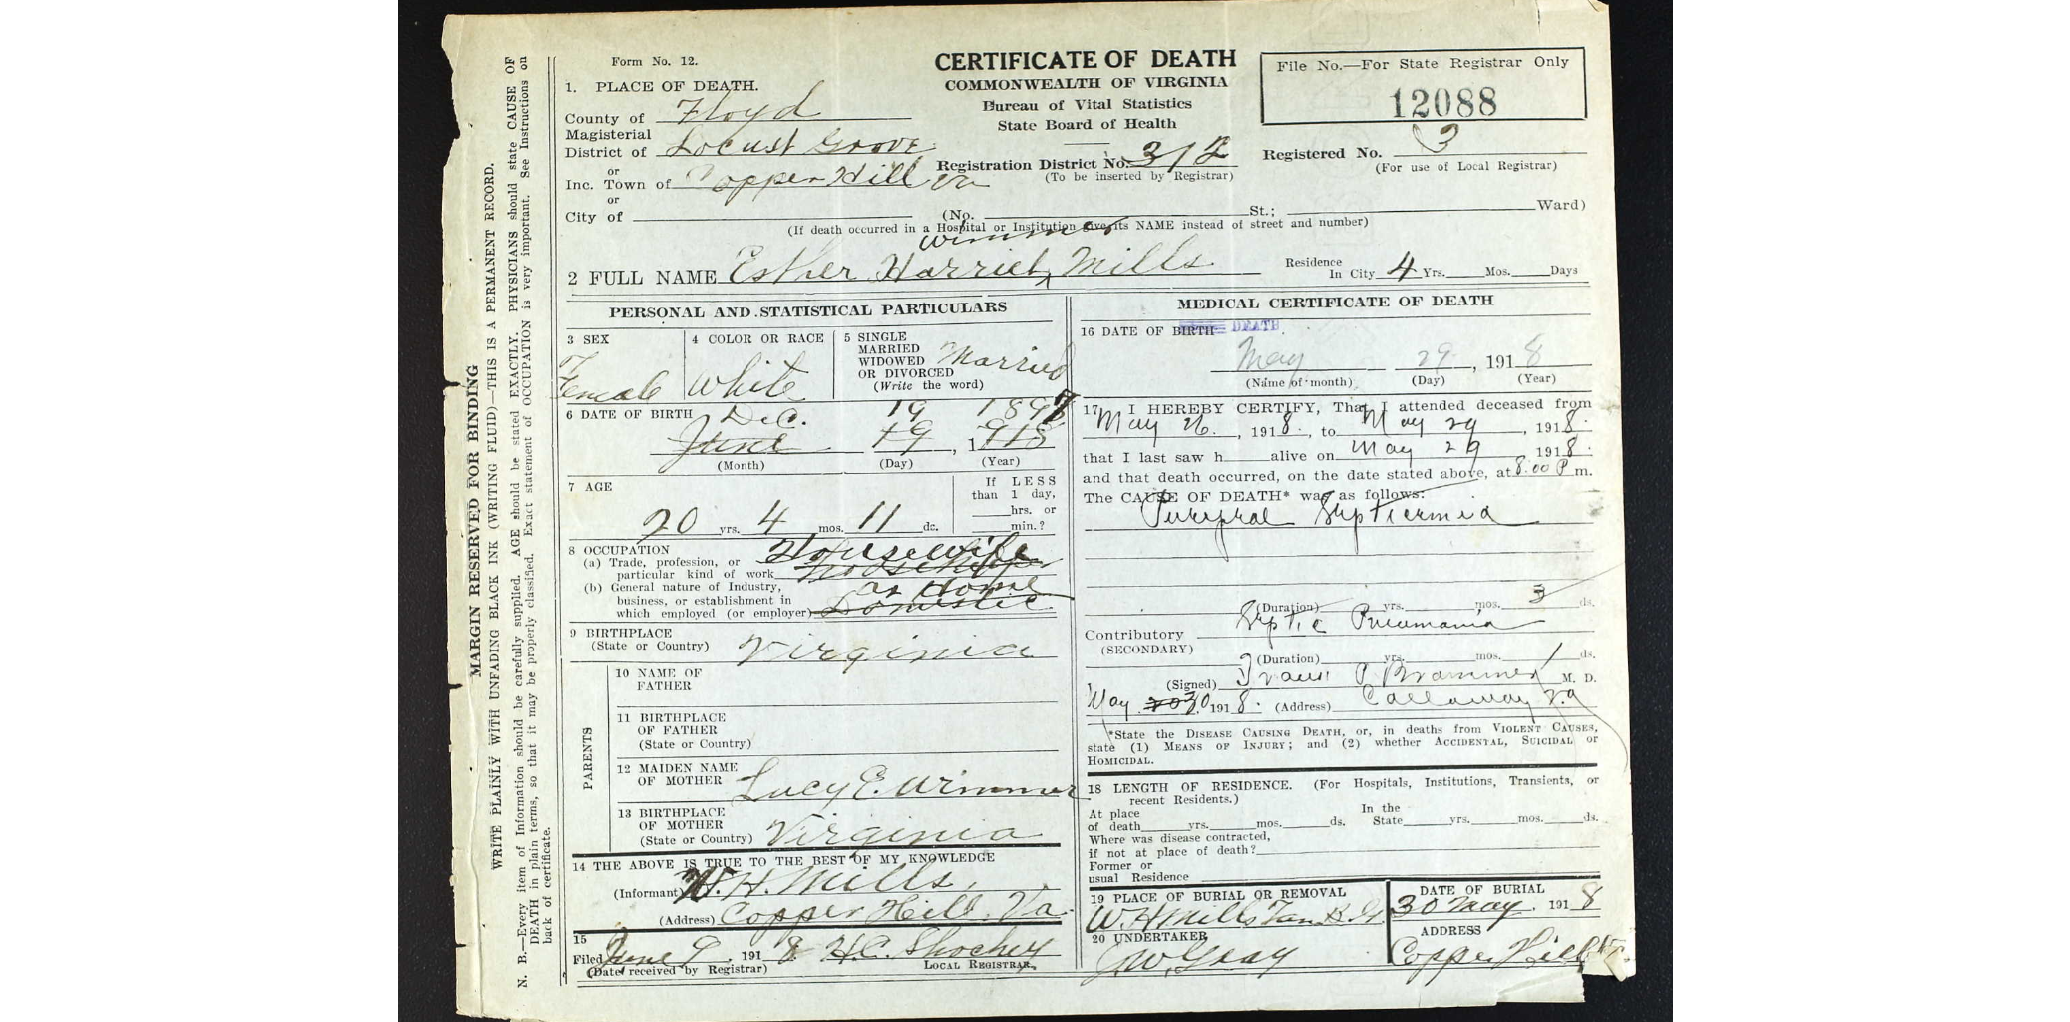 Form No. 12.
CERTIFICATE OF DEATH
COMMONWEALTH OF VIRGINIA
Bureau of Vital Statistics
State Board of Health
File No.—For State Registrar Only
12088
1. PLACE OF DEATH.
County of Floyd
Magisterial
District of Locust Grove
or
Inc. Town of Copper Hill Va
or
Registration District No. 312
(To be inserted by Registrar)
Registered No. 3
(For use of Local Registrar)
City of (No. St.; Ward)
(If death occurred in a Hospital or Institution give its NAME instead of street and number)
Wimmer
2 FULL NAME Esther Harriet Mills
Residence
In City 4 Yrs. Mos. Days
PERSONAL AND STATISTICAL PARTICULARS
3 SEX
Female
4 COLOR OR RACE
White
5 SINGLE
MARRIED
WIDOWED
OR DIVORCED
(Write the word)
Married
6 DATE OF BIRTH
Dec. 19 1897
June 19, 1918
(Month) (Day) (Year)
7 AGE
20 yrs. 4 mos. 11 ds.
If LESS
than 1 day,
hrs. or
min.?
8 OCCUPATION
(a) Trade, profession, or
particular kind of work
Housewife
(b) General nature of Industry,
business, or establishment in
which employed (or employer)
at Home
Domestic
9 BIRTHPLACE
(State or Country) Virginia
PARENTS
10 NAME OF
FATHER
11 BIRTHPLACE
OF FATHER
(State or Country)
12 MAIDEN NAME
OF MOTHER Lucy E. Wimmer
13 BIRTHPLACE
OF MOTHER
(State or Country) Virginia
14 THE ABOVE IS TRUE TO THE BEST OF MY KNOWLEDGE
(Informant) W. H. Mills
(Address) Copper Hill. Va.
15
Filed June 9, 1918 H.C. Shockey
(Date received by Registrar) LOCAL REGISTRAR.
MEDICAL CERTIFICATE OF DEATH
16 DATE OF BIRTH DEATH
May 29, 1918
(Name of month) (Day) (Year)
17 I HEREBY CERTIFY, That I attended deceased from
May 26, 1918, to May 29, 1918.
that I last saw h alive on May 29 1918.
and that death occurred, on the date stated above, at 8:00 P m.
The CAUSE OF DEATH* was as follows:
Puerpral Septicemia
(Duration) yrs. mos. 3 ds.
Contributory Septic Pneumonia
(SECONDARY)
(Duration) yrs. mos. 1 ds.
(Signed) P. Brammer M. D.
May 30 1918. (Address) Callaway Va
*State the DISEASE CAUSING DEATH, or, in deaths from VIOLENT CAUSES,
state (1) MEANS OF INJURY; and (2) whether ACCIDENTAL, SUICIDAL or
HOMICIDAL.
18 LENGTH OF RESIDENCE. (For Hospitals, Institutions, Transients, or
recent Residents.)
At place
of death yrs. mos. ds.
In the
State yrs. mos. ds.
Where was disease contracted,
if not at place of death?
Former or
usual Residence
19 PLACE OF BURIAL OR REMOVAL
W. H Mills
DATE OF BURIAL
30 May. 1918
20 UNDERTAKER
J.W. Gray
ADDRESS
Copper Hill
MARGIN RESERVED FOR BINDING
WRITE PLAINLY WITH UNFADING BLACK INK (WRITING FLUID)—THIS IS A PERMANENT RECORD.
N. B.—Every item of Information should be carefully supplied. AGE should be stated EXACTLY. PHYSICIANS should state CAUSE OF
DEATH in plain terms, so that it may be properly classified. Exact statement of OCCUPATION is very important. See Instructions on
back of certificate.